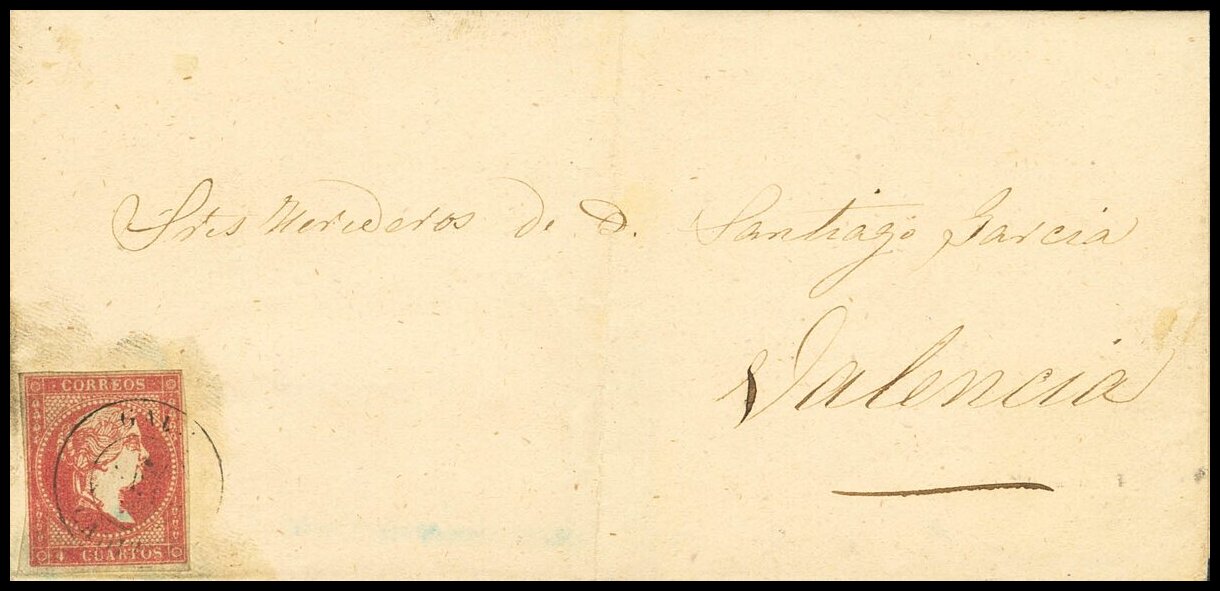 Sres Herederos de D. Santiago Garcia
Valencia
CORREOS
4 CUARTOS